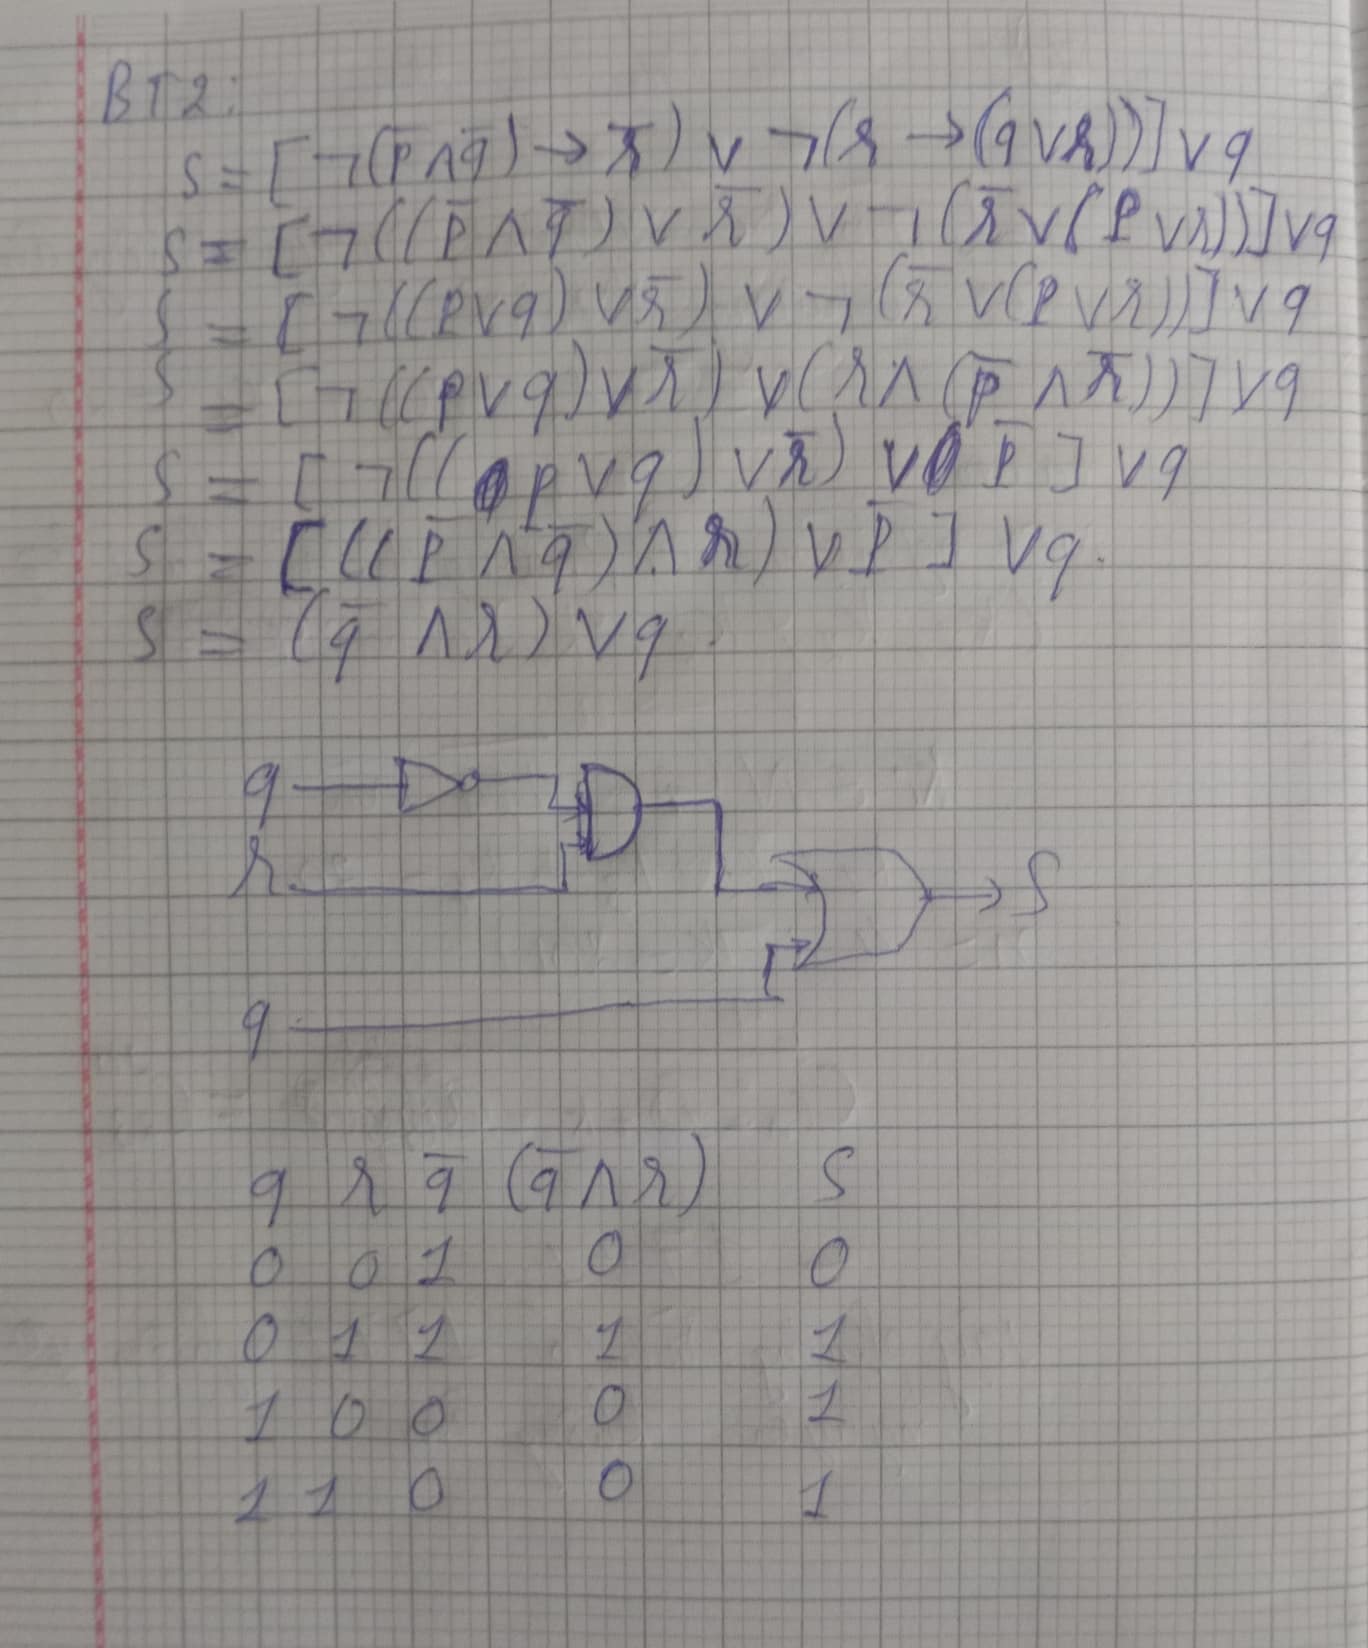 BT2:
S = [¬(p̅ ∧ q̅) → r̅) ∨ ¬(r → (q ∨ r))] ∨ q
S = [¬((p̅ ∧ q̅) ∨ r̅) ∨ ¬(r̅ ∨ (p ∨ r))] ∨ q
S = [¬((p ∨ q) ∨ r̅) ∨ ¬(r̅ ∨ (p ∨ r))] ∨ q
S = [¬((p ∨ q) ∨ r̅) ∨ (r ∧ (p̅ ∧ r̅))] ∨ q
S = [¬((p ∨ q) ∨ r̅) ∨ p̅] ∨ q
S = [((p̅ ∧ q̅) ∧ r) ∨ p̅] ∨ q.
S = (q̅ ∧ r) ∨ q.
q
r
S
q
q r q̅ (q̅ ∧ r) S
0 0 1 0 0
0 1 1 1 1
1 0 0 0 1
1 1 0 0 1